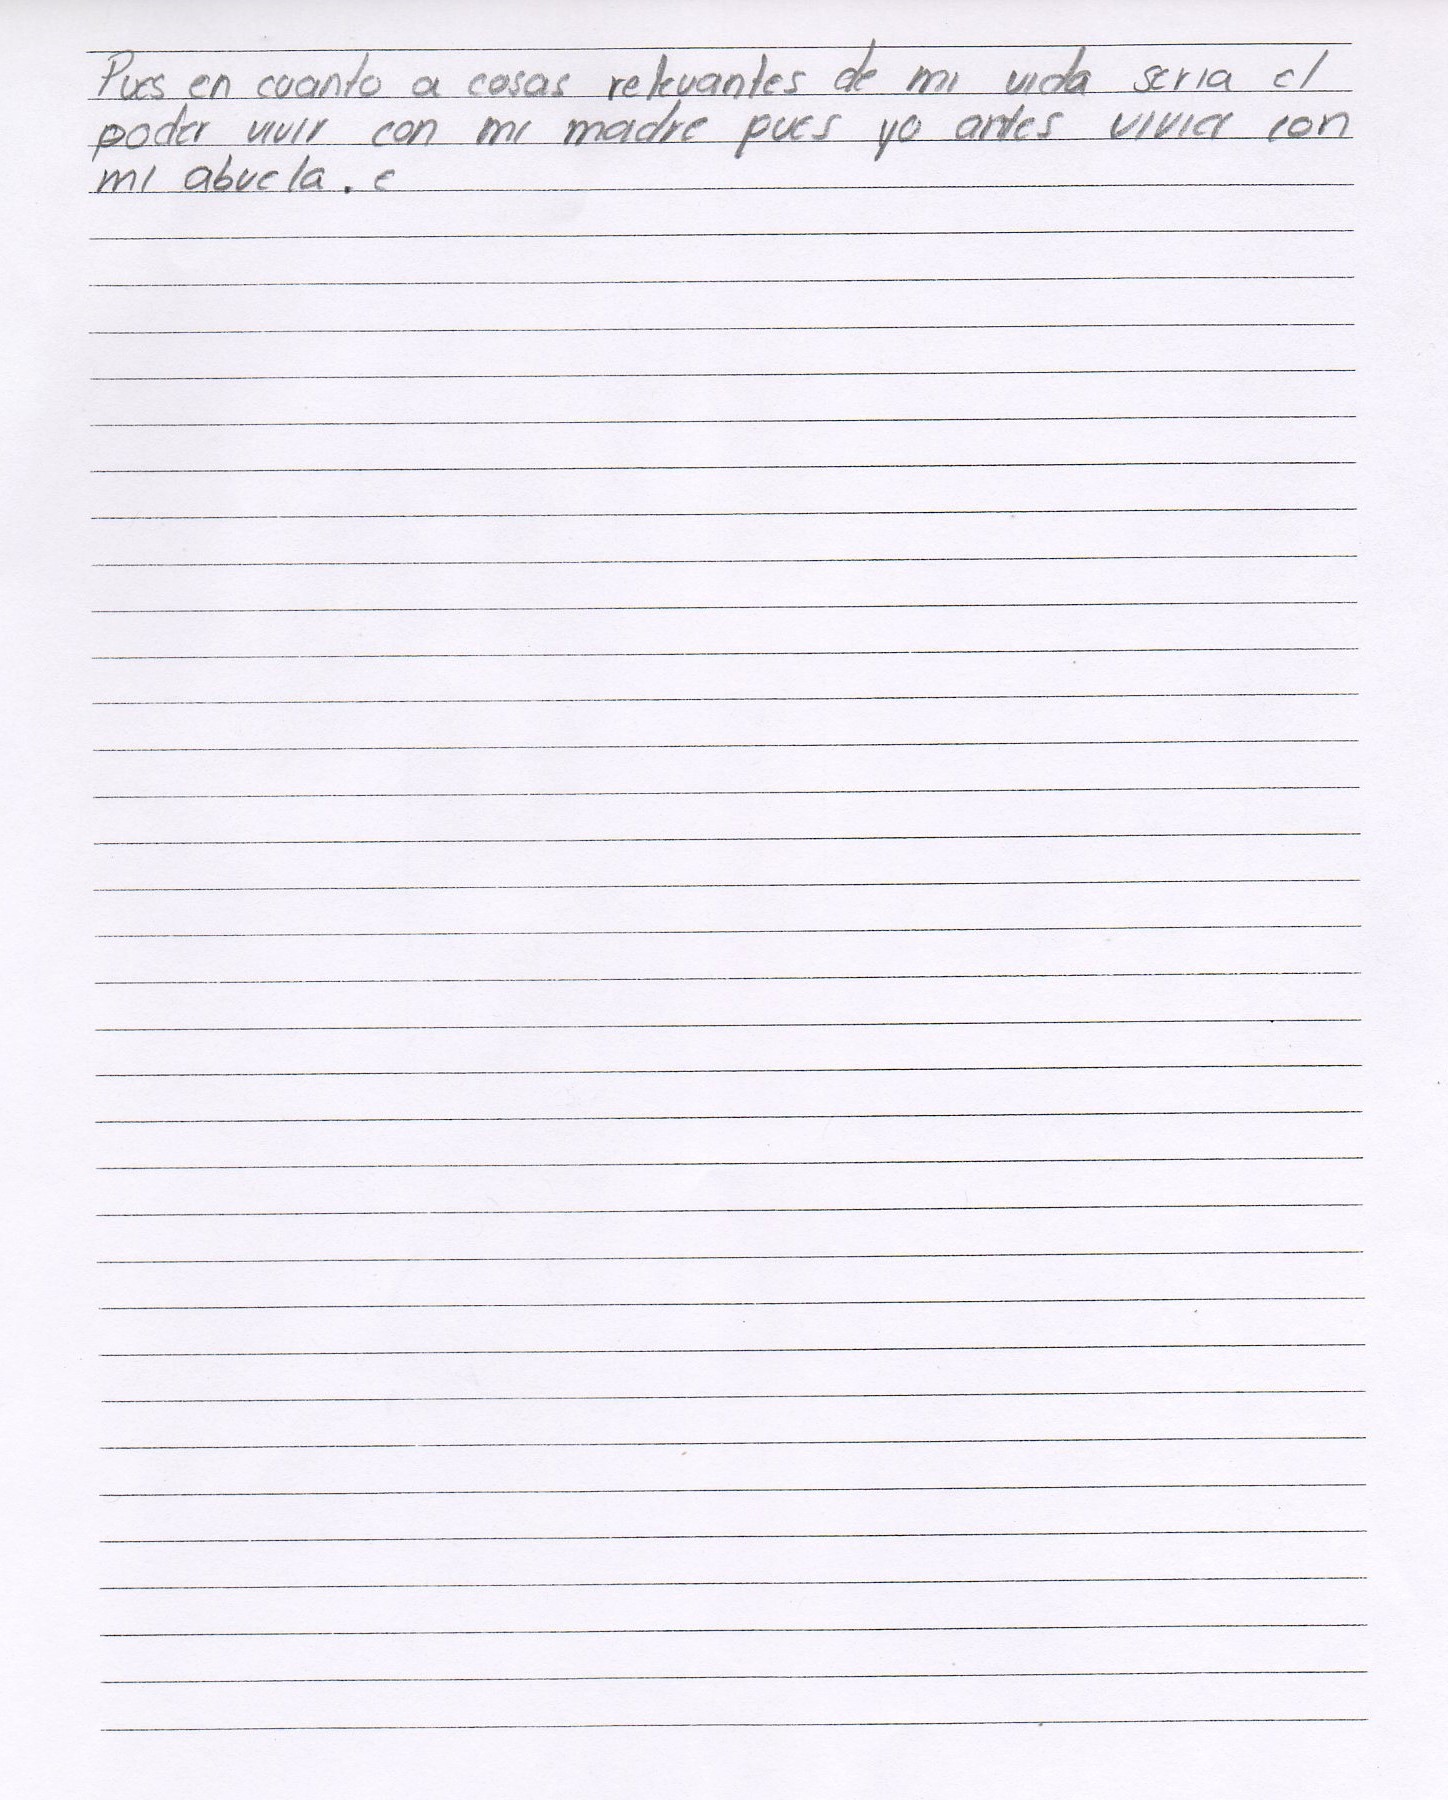 Pues en cuanto a cosas relevantes de mi vida seria el
poder vivir con mi madre pues yo antes vivia con
mi abuela. e